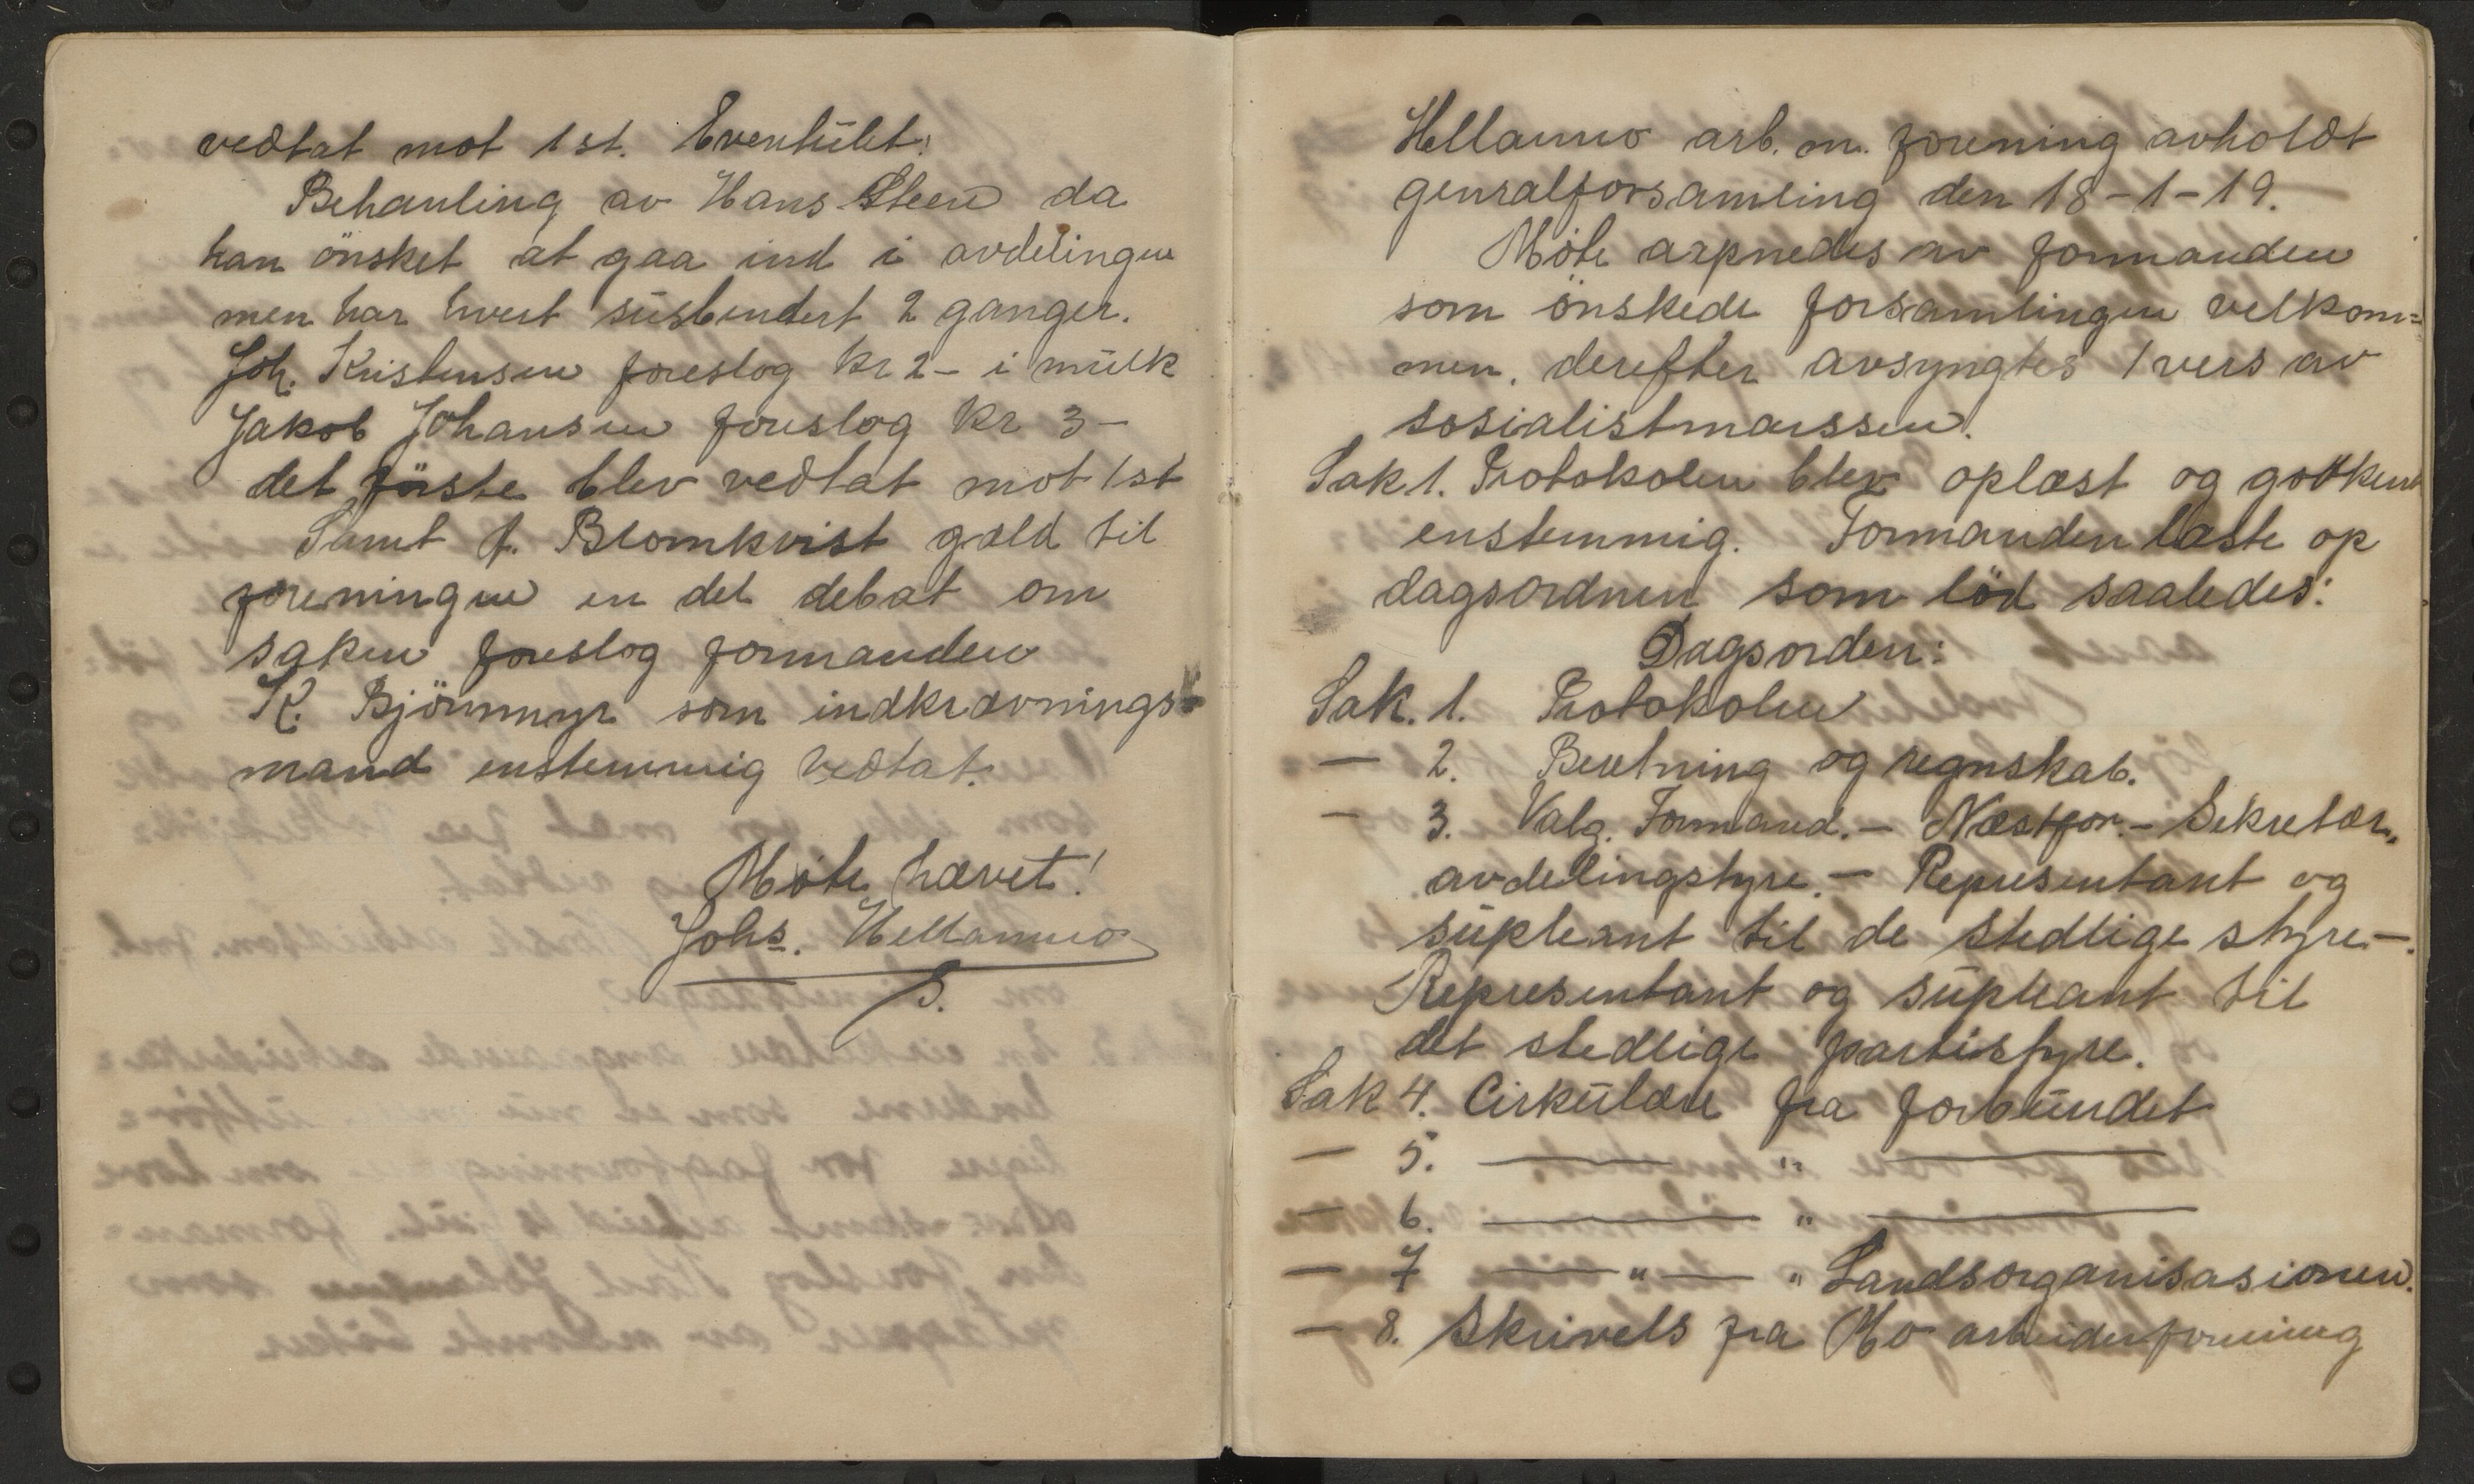 vedtat mot 1 st. Eventuelt:
Behanling av Hans Steen da
han önsket at gaa ind i avdelingen
men har hvert susbendert 2 ganger.
Joh. Kristensen foreslog kr 2- i mulk
Jakob Johansen foreslog kr 3-
det förste blev vedtat mot 1 st
Samt f. Blomkvist gæld til
foreningen en del debat om
saken foreslog formanden
K. Björnmyr som indkrævnings=
mand enstemmig vedtat.
Möte hævet!
Johs. Hellamo
S.
Hellamo arb. m. forening avholdt
genralforsamling den 18-1-19.
Möte aapnedes av formanden
som önskede forsamlingen velkom=
men. derefter avsyngtes 1 vers av
sosialistmarssen.
Sak 1. Protokolen blev oplæst og godkent
enstemmig. Formanden læste op
dagsordnen som löd saaledes:
Dagsorden:
Sak. 1. Protokolen
— 2. Beretning og regnskab.
— 3. Valg. Formand. — Næstfor. — Sekretær.
avdelingstyre. — Representant og
supleant til de stedlige styre —.
Representant og supleant til
det stedlige partistyre.
Sak 4. Cirkulære fra forbundet
— 5. — " —
— 6. — " —
— 7 — " — " Landsorganisasionen.
— 8. Skrivels fra Mo arbeiderforening